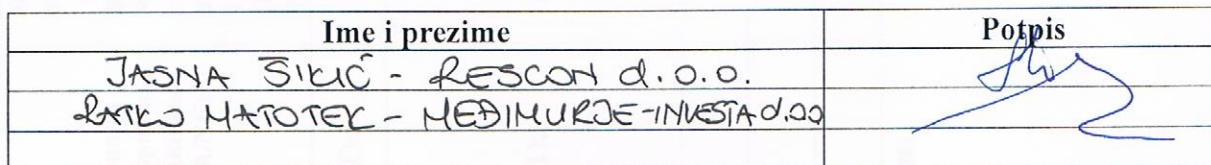 Ime i prezime Potpis
JASNA ŠIKIĆ - RESCON d.o.o.
RATKO MATOTEK - MEĐIMURJE-INVESTA d.o.o